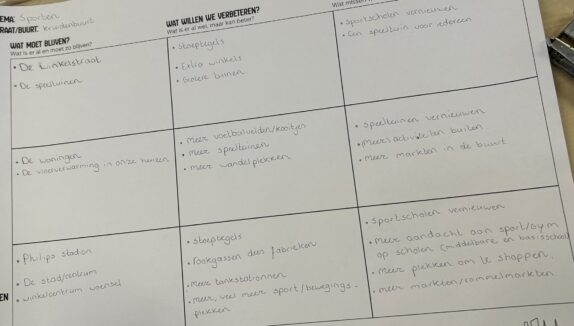 EMA: Sporten
RAAT/BUURT: Kruidenbuurt
WAT MOET BLIJVEN?
Wat is er al en moet zo blijven?
WAT WILLEN WE VERBETEREN?
Wat is er al wel, maar kan beter?
Wat missen
• De Winkelstraat
• De speeltuinen
• Stoeptegels
• Extra winkels
• Grotere tuinen
• Sportscholen vernieuwen
• Een speeltuin voor iedereen
• De woningen
• De vloerverwarming in onze huizen
• Meer voetbalvelden/kooitjes
• Meer speeltuinen
• Meer wandelplekken
• Speeltuinen vernieuwen
• Meer activiteiten buiten
• Meer markten in de buurt
EN
• Philips stadion
• De stad/centrum
• winkelcentrum woensel
• Stoeptegels
• Rookgassen den fabrieken
• Meer tankstationnen
• Meer, veel meer sport/bewegings-
plekken
• Sportscholen vernieuwen
• Meer aandacht aan sport/Gym
op scholen (middelbare en basisschool)
• Meer plekken om te shoppen.
• meer markten/rommelmarkten